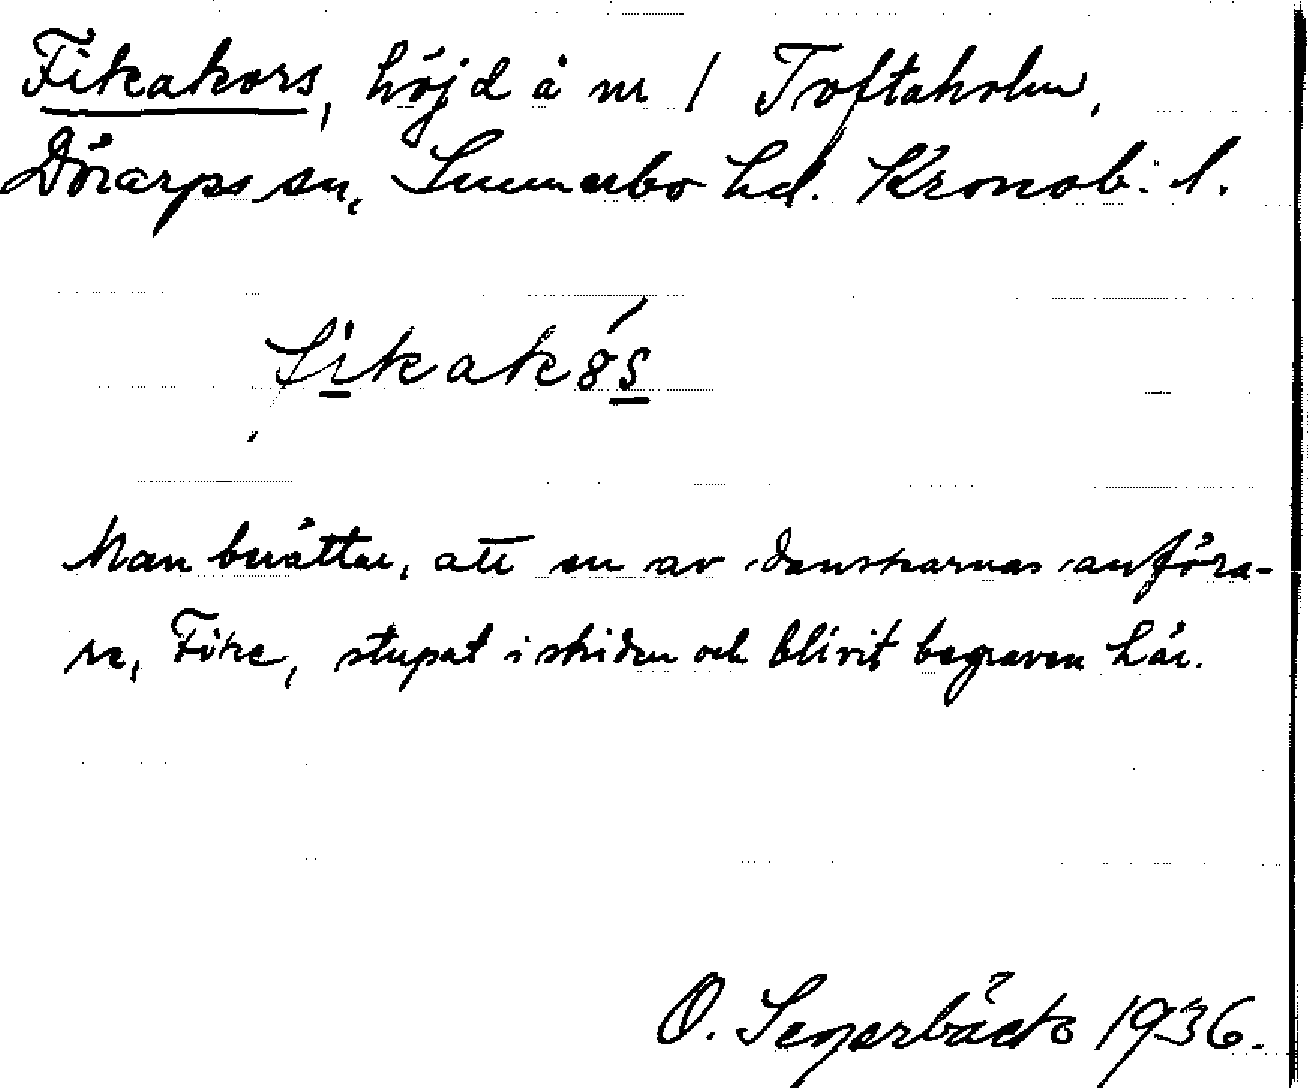 Fikakors, höjd å nr 1 Toftaholm,
Dörarps sn, Sunnerbo hd. Kronob. l.
fikakós
Man berättar, att en av danskarnas anföra-
re, Fike, stupat i striden och blivit begraven här.
O. Segerbäck 1936.